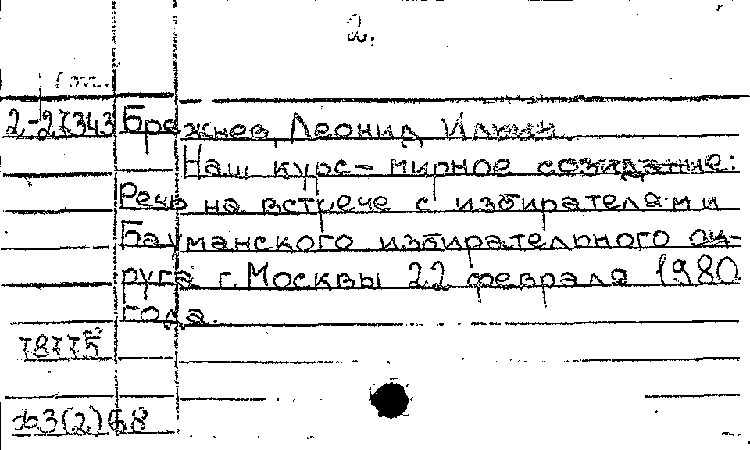 2.
2-27343 Брежнев, Леонид Ильич.
Наш курс – мирное созидание:
Речь на встрече с избирателями
Бауманского избирательного ок-
руга г. Москвы 22 февраля 1980
года.
78775
3(2)68